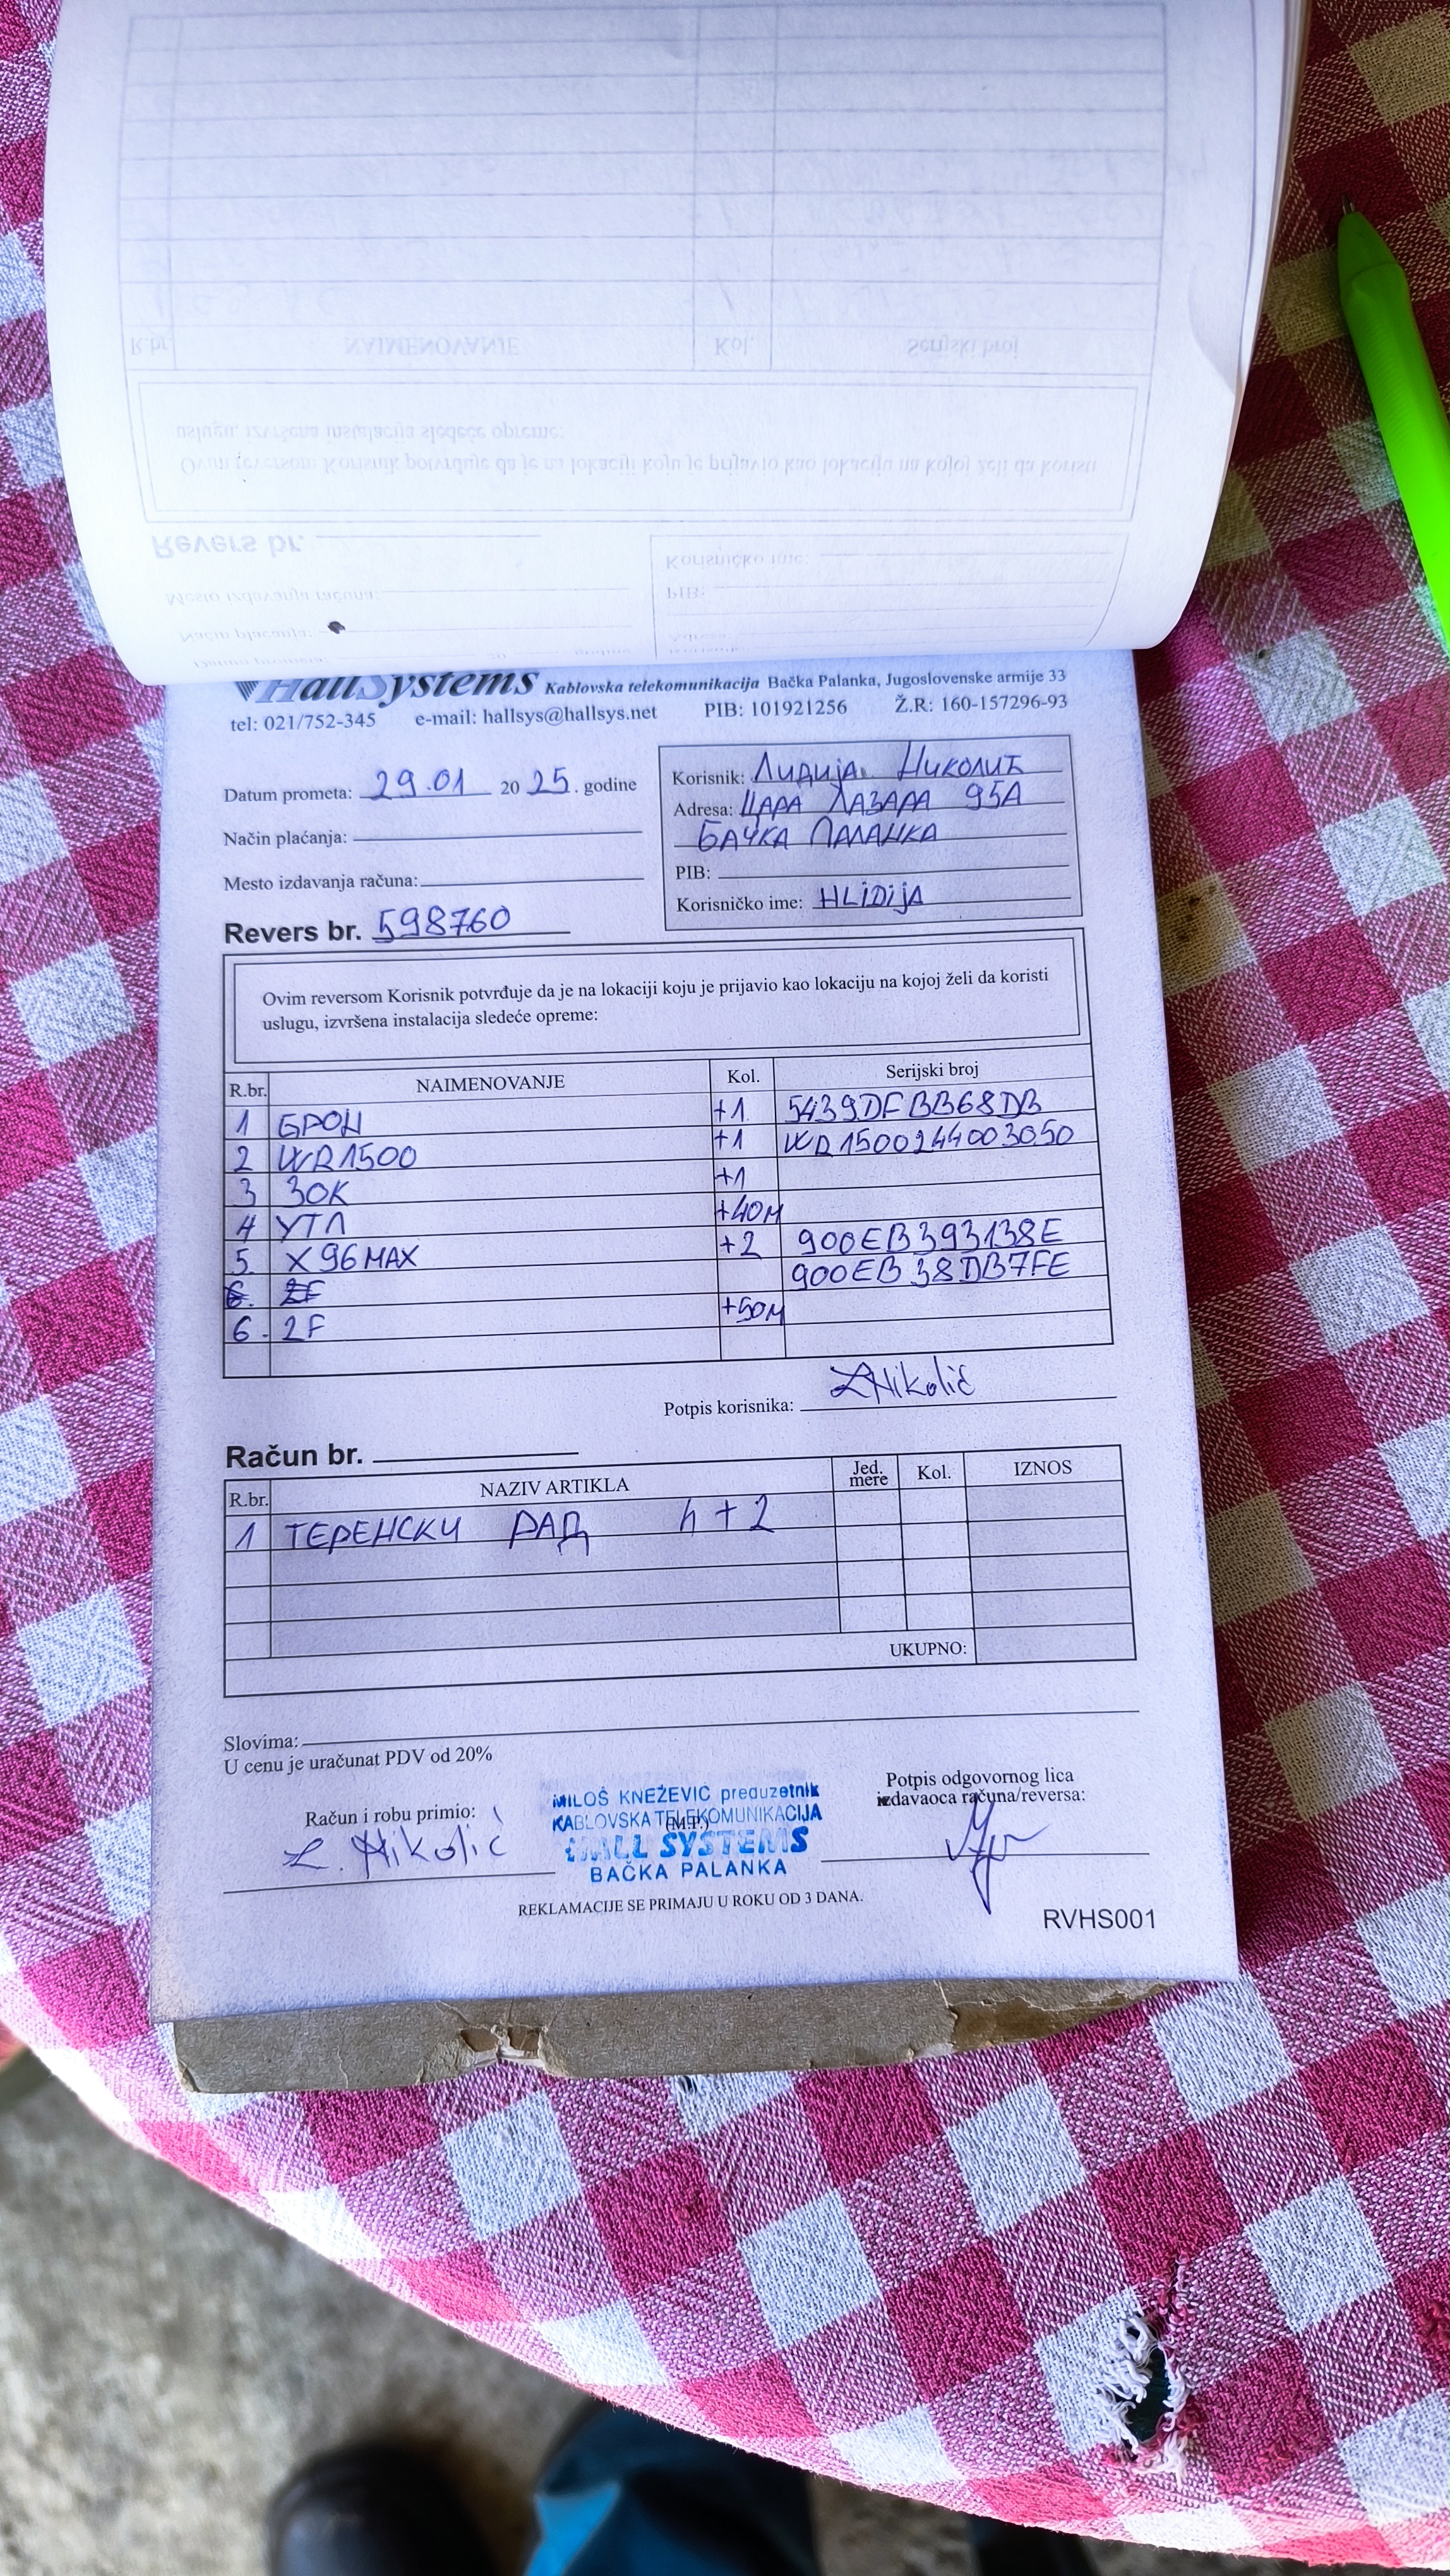 R.br. NAIMENOVANJE Kol. Serijski broj
uslugu, izvršena instalacija sledeće opreme:
Ovim reversom Korisnik potvrđuje da je na lokaciji koju je prijavio kao lokaciju na kojoj želi da koristi
Revers br.
Korisničko ime:
Mesto izdavanja računa:
PIB:
Način plaćanja:
HallSystems Kablovska telekomunikacija Bačka Palanka, Jugoslovenske armije 33
tel: 021/752-345 e-mail: hallsys@hallsys.net PIB: 101921256 Ž.R: 160-157296-93
Datum prometa: 29.01 20 25. godine
Način plaćanja:
Mesto izdavanja računa:
Revers br. 598760
Korisnik: Лидија Николић
Adresa: ЦАРА ЛАЗАРА 95А
БАЧКА ПАЛАНКА
PIB:
Korisničko ime: HLiDijA
Ovim reversom Korisnik potvrđuje da je na lokaciji koju je prijavio kao lokaciju na kojoj želi da koristi
uslugu, izvršena instalacija sledeće opreme:
R.br. NAIMENOVANJE Kol. Serijski broj
1 GPOH +1 5439DFBB68DB
2 WR1500 +1 WR1500244003050
3 ЗОК +1
4 УТП +40м
5. X96MAX +2 900EB393138E
6. 2F 900EB38DB7FE
6. 2F +50м
Potpis korisnika: LNikolić
Račun br.
R.br. NAZIV ARTIKLA Jed. mere Kol. IZNOS
1 ТЕРЕНСКИ РАД h+2
UKUPNO:
Slovima:
U cenu je uračunat PDV od 20%
Račun i robu primio:
L. Nikolić
MILOŠ KNEŽEVIĆ preduzetnik
KABLOVSKA TELEKOMUNIKACIJA
(M.P.)
HALL SYSTEMS
BAČKA PALANKA
Potpis odgovornog lica
izdavaoca računa/reversa:
REKLAMACIJE SE PRIMAJU U ROKU OD 3 DANA.
RVHS001